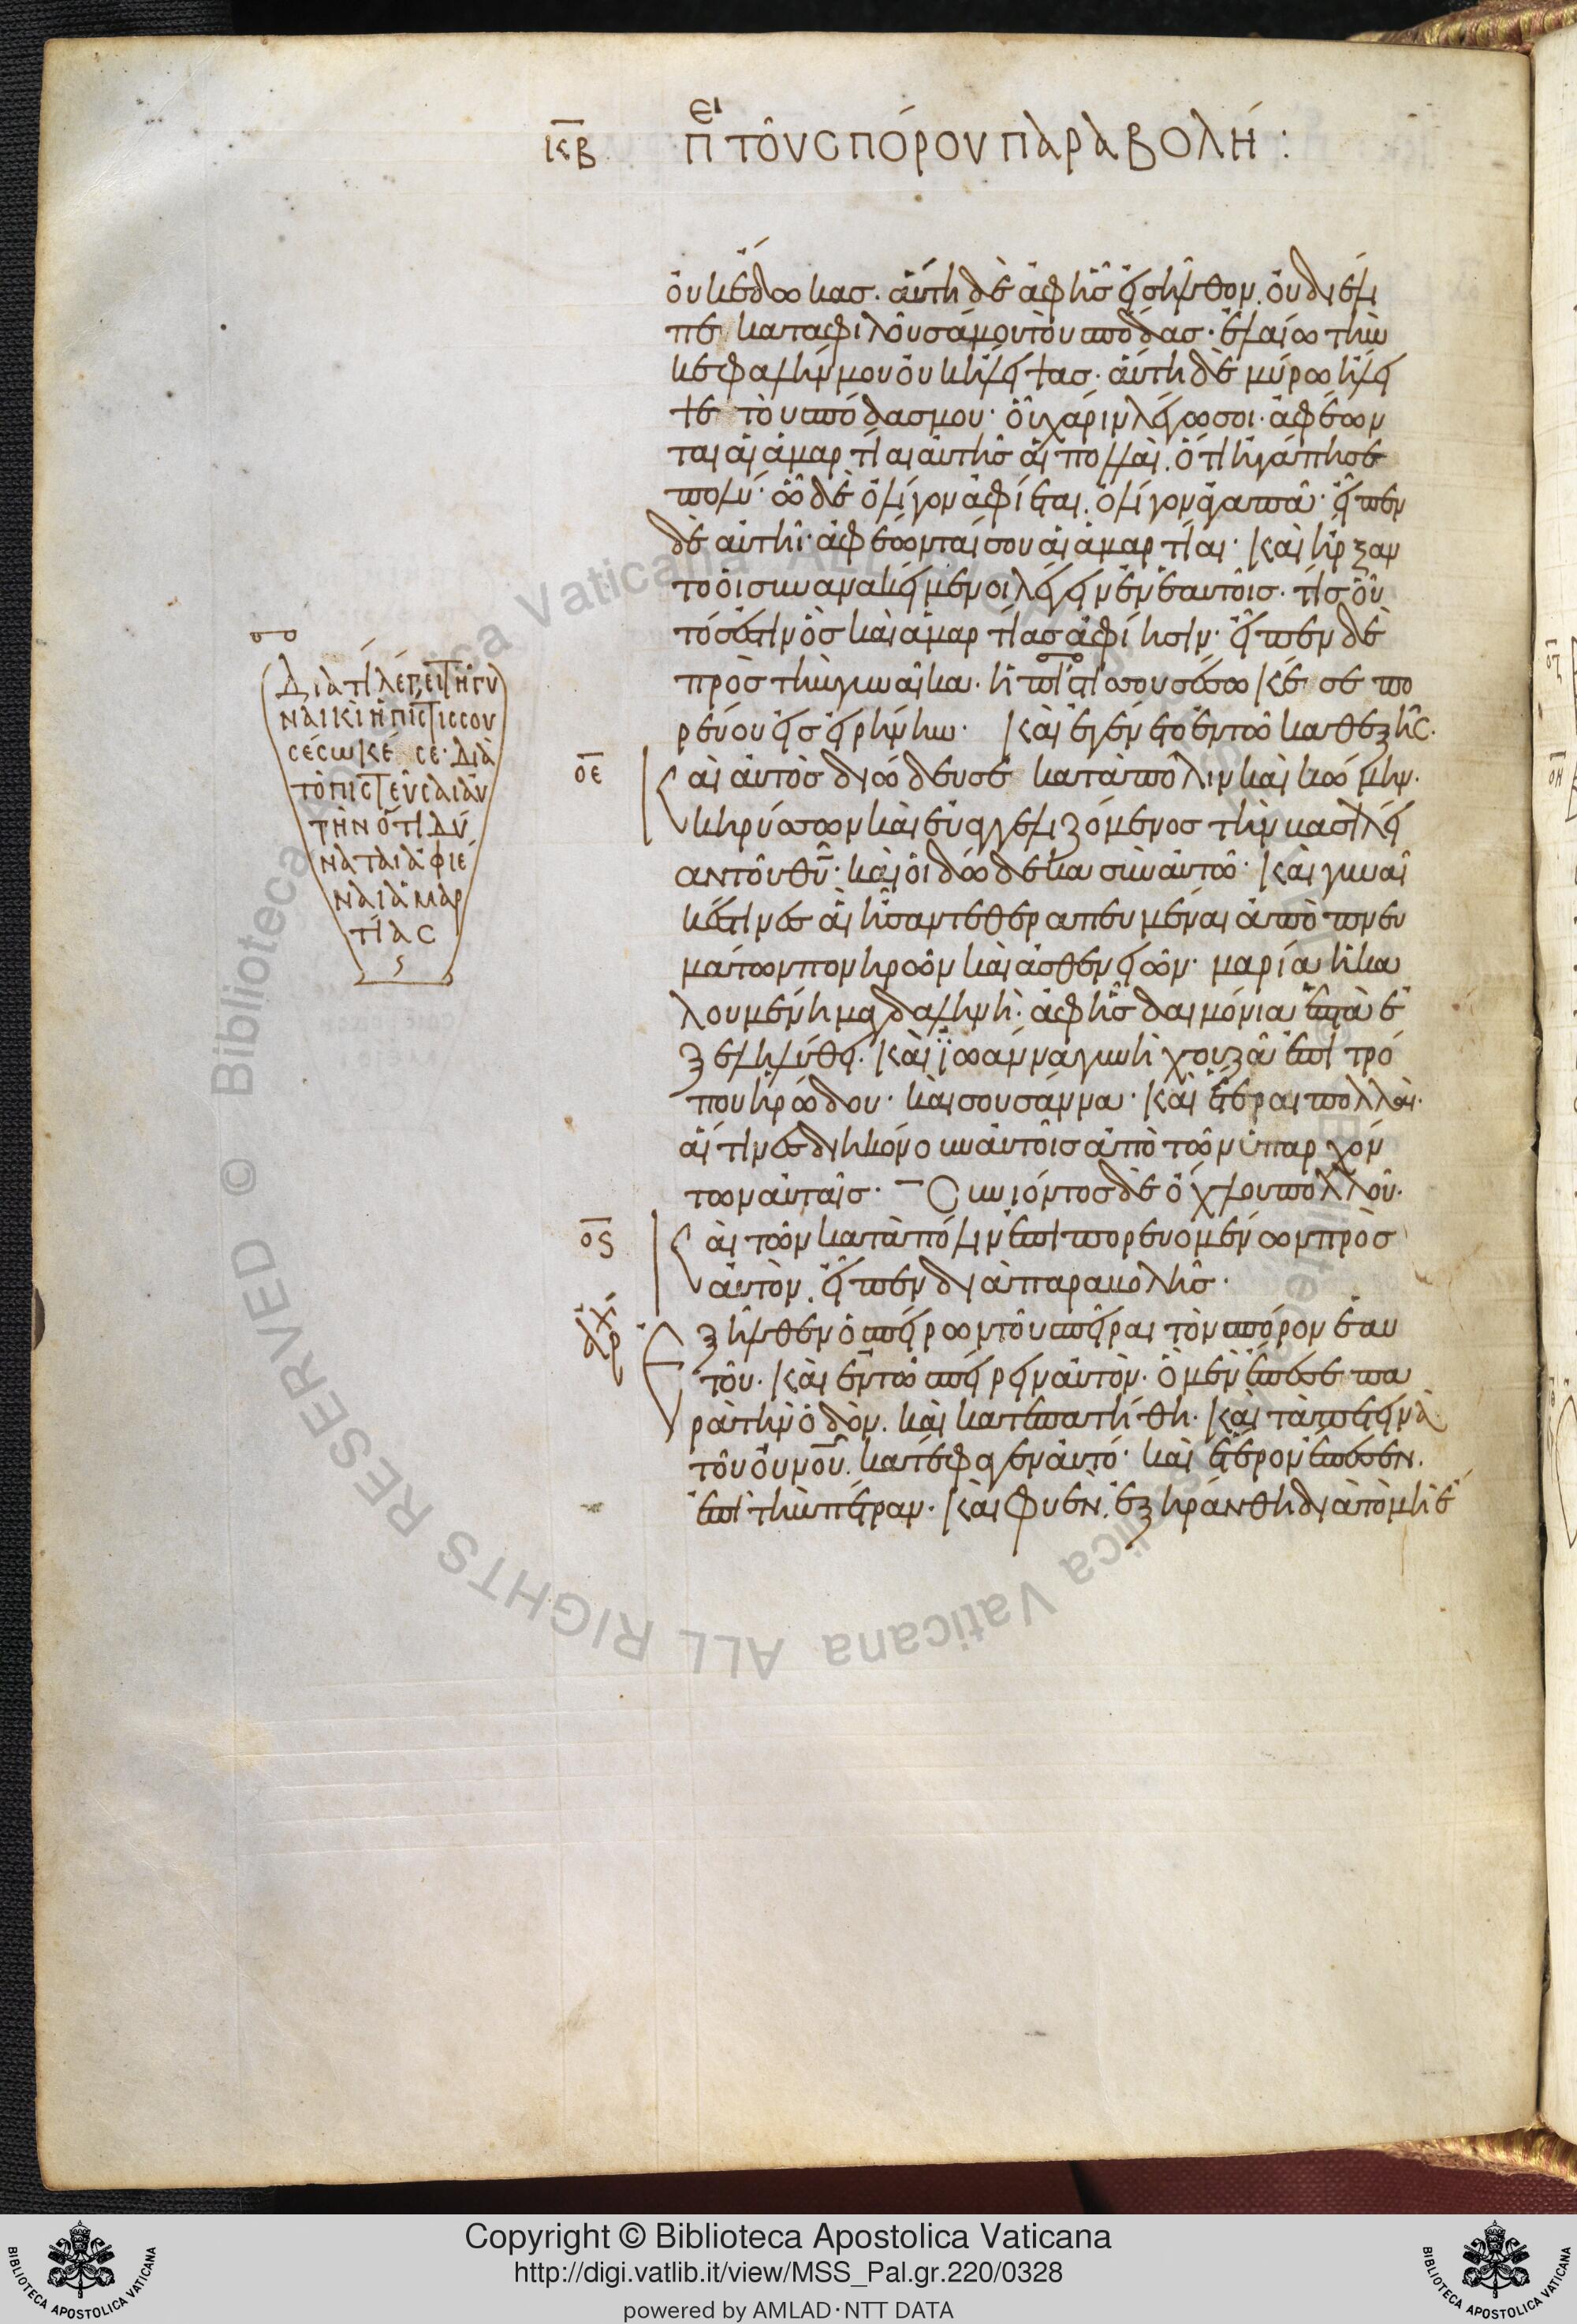 κβ πει τοῦ σπόρου παραβολή :
οὐκ ἔδωκας. αὕτη δὲ ἀφῆς εἰσῆλθον, οὐ διέλι
πε καταφιλοῦσά μου τοὺς πόδας. ἐλαίω τὴν
κεφαλήν μου οὐκ ἤλειψας. αὕτη δὲ μύρω ἤλει
ψε τοὺς πόδας μου. οὗ χάριν λέγω σοι. ἀφέων
ται αἱ ἁμαρτίαι αὐτῆς αἱ πολλαὶ. ὅτι ἠγάπησε
πολύ. ὧ δὲ ὀλίγον ἀφίεται. ὀλίγον ἀγαπᾶ. εἶπεν
δὲ αὐτῆ. ἀφέωνταί σου αἱ ἁμαρτίαι. καὶ ἤρξαν
το οἱ συνανακείμενοι λέγειν ἐν ἑαυτοῖς. τίς οὗ
τός ἐστιν ὃς καὶ ἁμαρτίας ἀφίησιν. εἶπεν δὲ
πρὸς τὴν γυναῖκα. ἡ πίστις σου σέσωκέ σε πο
ρεύου εἰς εἰρήνην. καὶ ἐγένετο ἐν τῶ καθεξῆς.
οε καὶ αὐτὸς διώδευσε κατὰ πόλιν καὶ κώμην.
κηρύσσων καὶ εὐαγγελιζόμενος τὴν βασιλεί
αν τοῦ θυ. καὶ οἱ δώδεκα σὺν αὐτῶ. καὶ γυναῖ
κές τινες αἳ ἦσαν τεθεραπευμέναι ἀπὸ πνευ
μάτων πονηρῶν καὶ ἀσθενειῶν. μαρία ἡ κα
λουμένη μαγδαληνὴ. ἀφῆς δαιμόνια ἑπτὰ ἐ
ξεληλύθει. καὶ ϊωάννα γυνὴ χουζᾶ ἐπιτρό
που ἡρώδου. καὶ σουσάννα. καὶ ἕτεραι πολλαὶ.
αἵτινες διηκόνουν αὐτοῖς ἀπὸ τῶν ὑπαρχόν
των αὐταῖς. Συνιόντος δὲ ὄχλου πολλοῦ.
ος καὶ τῶν κατὰ πόλιν ἐπιπορευομένων πρὸς
αὐτὸν. εἶπεν διὰ παραβολῆς.
αρχ Ἐξῆλθεν ὁ σπείρων τοῦ σπεῖραι τὸν σπόρον ἑαυ
τοῦ. καὶ ἐν τῶ σπείρειν αὐτὸν. ὃ μὲν ἔπεσε πα
ρὰ τὴν ὁδὸν. καὶ κατεπατήθη. καὶ τὰ πετεινὰ
τοῦ οὐνοῦ. κατέφαγεν αὐτό. καὶ ἕτερον ἔπεσεν.
ἐπὶ τὴν πέτραν. καὶ φυὲν. ἐξηράνθη διὰ τὸ μὴ ἔ
Διατί λέγει τῆ γυ
ναικὶ ἡ πίστις σου
σέσωκέ σε. διὰ
τὸ πιστεῦσαι αὐ
τὴν ὅτι δύ
ναται ἀφιέ
ναι ἁμαρ
τίας